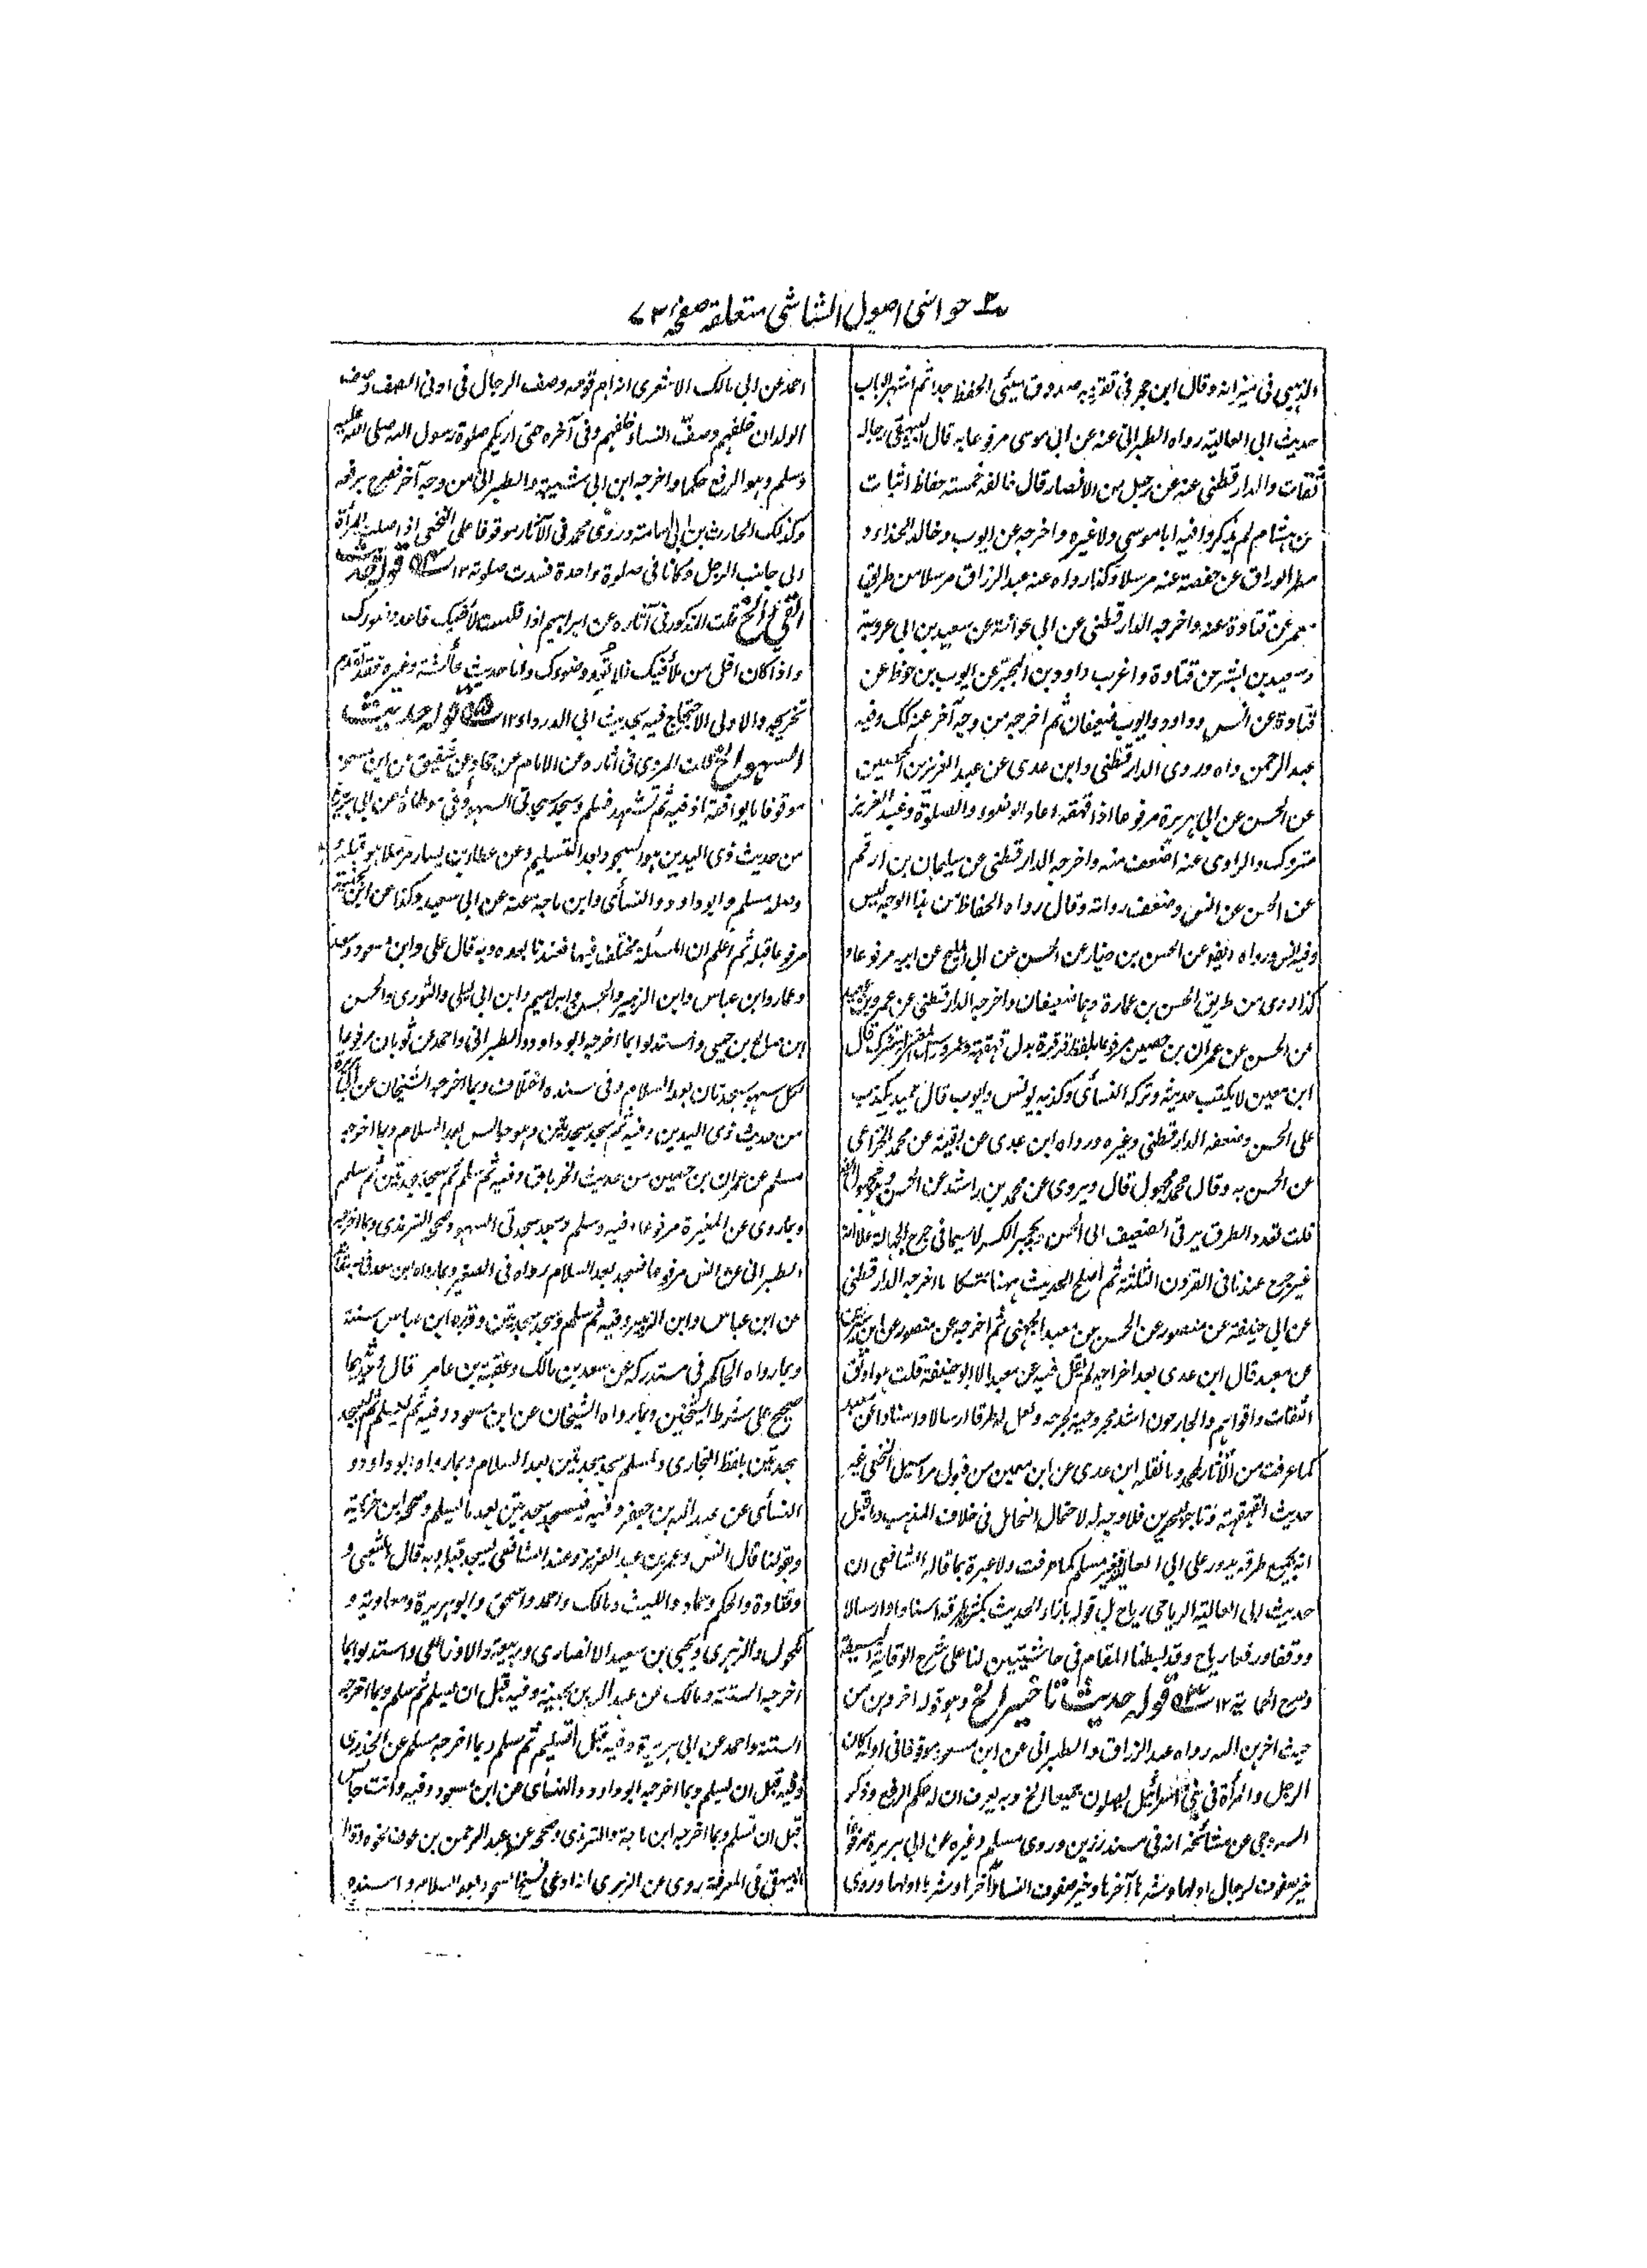 حواشی اصول الشاشی متعلقہ صفحہ ۷۳
الذہبی فی میزانہ وقال ابن حجر فی تقریبہ صدوق سیئی الحفظ جدا ثم اشہر الباب
حدیث ابی العالیة رواہ الطبرانی عنہ عن ابی موسی مرفوعا بہ قال البیہقی رجالہ
ثقات والدارقطنی عنہ عن رجل من الانصار قال خالفہ خمستہ حفاظ اثبات
عن ہشام لم یذکروا فیہ ابا موسی ولا غیرہ واخرجہ عن ایوب وخالد الحذاء و
مطر الوراق عن حفصة عنہ مرسلا وکذا رواہ عنہ عبد الرزاق مرسلا من طریق
معمر عن قتادة عنہ واخرجہ الدارقطنی عن ابی عوانة عن سعید بن ابی عروبة
وسعید بن بشیر عن قتادة واغرب داود بن المحبر عن ایوب بن خوط عن
قتادة عن انس وداود وایوب ضعیفان ثم اخرجہ من وجہ آخر عنہ کک وفیہ
عبد الرحمن واہ وروی الدارقطنی وابن عدی عن عبد العزیز بن الحصین
عن الحسن عن ابی ہریرة مرفوعا اذا قہقہ اعاد الوضوء والصلوة وعبد العزیز
متروک والراوی عنہ اضعف منہ واخرجہ الدارقطنی عن سلیمان بن ارقم
عن الحسن عن انس وضعف رواتہ وقال رواہ الحفاظ من ہذا الوجہ لیس
وفیہ انس ورواہ ایضا عن الحسن بن دینار عن الحسن عن ابی الملیح عن ابیہ مرفوعا و
کذا روی من طریق الحسن بن عمارة وہما ضعیفان واخرجہ الدارقطنی عن عمرو بن عبید
عن الحسن عن عمران بن حصین مرفوعا بلفظ قرقرة بدل قہقہة وعمرو قال
ابن معین لا یکتب حدیثہ وترکہ النسائی وکذبہ یونس وایوب قال حمید یکذب
علی الحسن وضعفہ الدارقطنی وغیرہ ورواہ ابن عدی عن بقیة عن محمد الخزاعی
عن الحسن بہ وقال محمد مجہول قال ویروی عن محمد بن راشد عن الحسن
قلت تعدد الطرق یرقی الضعیف الی الحسن ویجبر الکسر لا سیما فی جرح الجہالة علی انہ
غیر جرح عندنا فی القرون الثلثة ثم اصلح الحدیث ہہنا ما اخرجہ الدارقطنی
عن ابی حنیفة عن منصور عن الحسن عن معبد الجہنی ثم اخرجہ عن منصور عن ابن سیرین
عن معبد قال ابن عدی بعد اخراجہ لم یقل فیہ عن معبد الا ابو حنیفة قلت ہو اوثق
الثقات واقواہم والجارحون اشد مجروحیة بجرحہ ولعل لہ طرقا ارسالا واسنادا عن معبد
کما عرفت من الآثار لمحمد وما نقلہ ابن عدی عن ابن معین من قبول مراسیل النخعی غیر
حدیث القہقہة وتاجر البحرین فلا وجہ لہ لاحتمال التحامل فی خلاف المذہب وما قیل
انہ بجمیع طرقہ یدور علی ابی العالیة فغیر مسلم کما عرفت ولا عبرة بما قالہ الشافعی ان
حدیث ابی العالیة الریاحی ریاح بل قولہ بازاء الحدیث بکثرة طرقہ اسنادا وارسالا
ووقفا ورفعا ریاح وقد بسطنا المقام فی حاشیتین لنا علی شرح الوقایة البسیطة
قولہ حدیث تاخیر الخ وہو قولہ اخروہن من
حیث اخرہن اللہ رواہ عبد الرزاق والطبرانی عن ابن مسعود موقوفا فی اولہ کان
الرجل والمرأة فی بنی اسرائیل یصلون جمیعا الخ وبہ یعرف ان لہ حکم الرفع وذکر
السروجی عن مشائخہ انہ فی مسند رزین وروی مسلم وغیرہ عن ابی ہریرة مرفوعا
خیر صفوف الرجال اولہا وشرہا آخرہا وخیر صفوف النساء آخرہا وشرہا اولہا وروی
احمد عن ابی مالک الاشعری انہ ام قومہ وصف الرجال فی ادنی الصف وصف
الولدان خلفہم وصف النساء خلفہم وفی آخرہ حتی اریکم صلوة رسول اللہ صلی اللہ علیہ
وسلم وہو الرفع حکما واخرجہ ابن ابی شیبة والطبرانی من وجہ آخر فصرح برفعہ
وکذلک الحارث بن ابی اسامة وروی محمد فی الآثار موقوفا علی النخعی اذا صلت المرأة
الی جانب الرجل وکانا فی صلوة واحدة فسدت صلوتہ ۱۲ قولہ حدیث
القی الخ قلت المذکور فی آثارہ عن ابراہیم اذا قلست ملأ فیک فاعد وضوءک
واذا کان اقل من ملأ فیک فلا تعد وضوءک واما حدیث عائشة وغیرہ فقد تقدم
تخریجہ والاولی الاحتجاج فیہ بحدیث ابی الدرداء ۱۲ قولہ حدیث
السہو الخ قلت المروی فی آثارہ عن الامام عن حماد عن شقیق عن ابن مسعود
موقوفا ما یوافقہ اذ فیہ ثم تشہد فسلم وسجد سجدتی السہو وفی موطاہ عن ابی ہریرة
من حدیث ذی الیدین ہو السجود بعد التسلیم وعن عطاء بن یسار مرسلا ہو قبلہ
وصلہ مسلم وابو داود والنسائی وابن ماجہ عنہ عن ابی سعید وکذا عن ابن بحینة
مرفوعا قبلہ ثم اعلم ان المسئلة مختلف فیہا فعندنا بعدہ وبہ قال علی وابن مسعود وسعد
وعمار وابن عباس وابن الزبیر والحسن وابراہیم وابن ابی لیلی والثوری والحسن
ابن صالح بن حیی واستدلوا بما اخرجہ ابو داود والطبرانی واحمد عن ثوبان مرفوعا
لکل سہو سجدتان بعد السلام وفی سندہ اختلاف وبما اخرجہ الشیخان عن ابی ہریرة
من حدیث ذی الیدین وفیہ ثم سجد سجدتین وہو جالس بعد السلام وبما اخرجہ
مسلم عن عمران بن حصین من حدیث الخرباق وفیہ ثم سلم ثم سجد سجدتین ثم سلم
وبما روی عن المغیرة مرفوعا وفیہ وسلم وسجد سجدتی السہو وصححہ الترمذی وبما اخرجہ
الطبرانی عن انس مرفوعا فسجد بعد السلام رواہ فی الصغیر وبما رواہ ابن سعد فی طبقاتہ
عن ابن عباس وابن الزبیر وفیہ ثم سلم وسجد سجدتین وقررہ ابن عباس سنة
وبما رواہ الحاکم فی مستدرکہ عن سعد بن مالک وعقبة بن عامر قال وحدیثہما
صحیح علی شرط الشیخین وبما رواہ الشیخان عن ابن مسعود وفیہ ثم لیسلم ثم لیسجد
سجدتین بلفظ البخاری ولمسلم سجد سجدتین بعد السلام وبما رواہ ابو داود و
النسائی عن عبد اللہ بن جعفر وفیہ فلیسجد سجدتین بعد ما یسلم وصححہ ابن خزیمة
وبقولنا قال انس وعمر بن عبد العزیز وعند الشافعی یسجد قبلہ وبہ قال الشعبی و
وقتادة والحکم وحماد واللیث ومالک واحمد واسحق وابو ہریرة ومعاویة و
مکحول والزہری ویحیی بن سعید الانصاری وربیعة والاوزاعی واستدلوا بما
اخرجہ الستة ومالک عن عبد اللہ بن بحینة وفیہ قبل ان یسلم ثم سلم وبما اخرجہ
الستة واحمد عن ابی ہریرة وفیہ قبل التسلیم ثم سلم وبما اخرجہ مسلم عن الخدری
وفیہ قبل ان یسلم وبما اخرجہ ابو داود والنسائی عن ابن مسعود وفیہ وانت جالس
قبل ان تسلم وبما اخرجہ ابن ماجة والترمذی وصححہ عن عبد الرحمن بن عوف نحوہ وقال
البیہقی فی المعرفة روی عن الزہری انہ ادعی نسخ السجود بعد السلام واسندہ